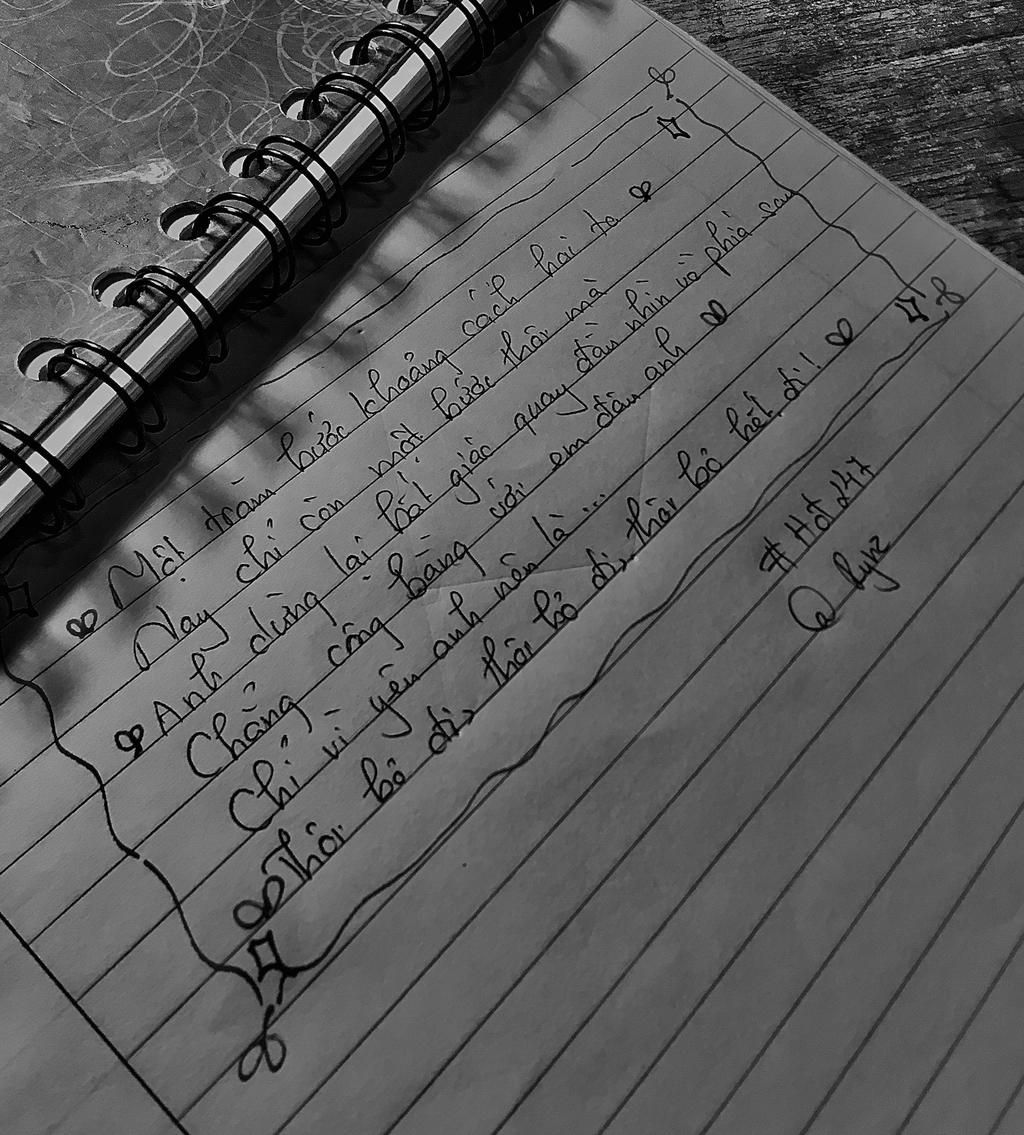 Một trăm bước khoảng cách hai ta
Nay chỉ còn một bước thôi mà
Anh dừng lại bất giác quay đầu nhìn về phía sau
Chẳng công bằng với em đâu anh
Chỉ vì yêu anh nên là...
Thôi bỏ đi, thôi bỏ đi, thôi bỏ hết đi!
#Hot247